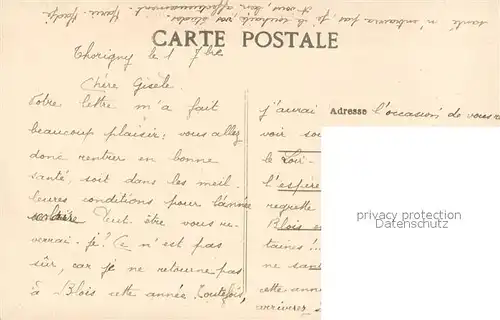 santé n'entravera pas, je le souhaite, vos études.
CARTE POSTALE
Thorigny le 1 7bre
Chère Gisèle.
Votre lettre m'a fait
beaucoup plaisir : vous allez
donc rentrer en bonne
santé, soit dans les meil-
leures conditions pour l'année
scolaire Peut-être vous re-
verrai-je ? Ce n'est pas
sûr, car je ne retourne pas
à Blois cette année. Toutefois,
j'aurai Adresse l'occasion de vous
voir
le Loir-
l'espère
regrette
Blois
taines !!!
ne
cette
arriverez
privacy protection
Datenschutz